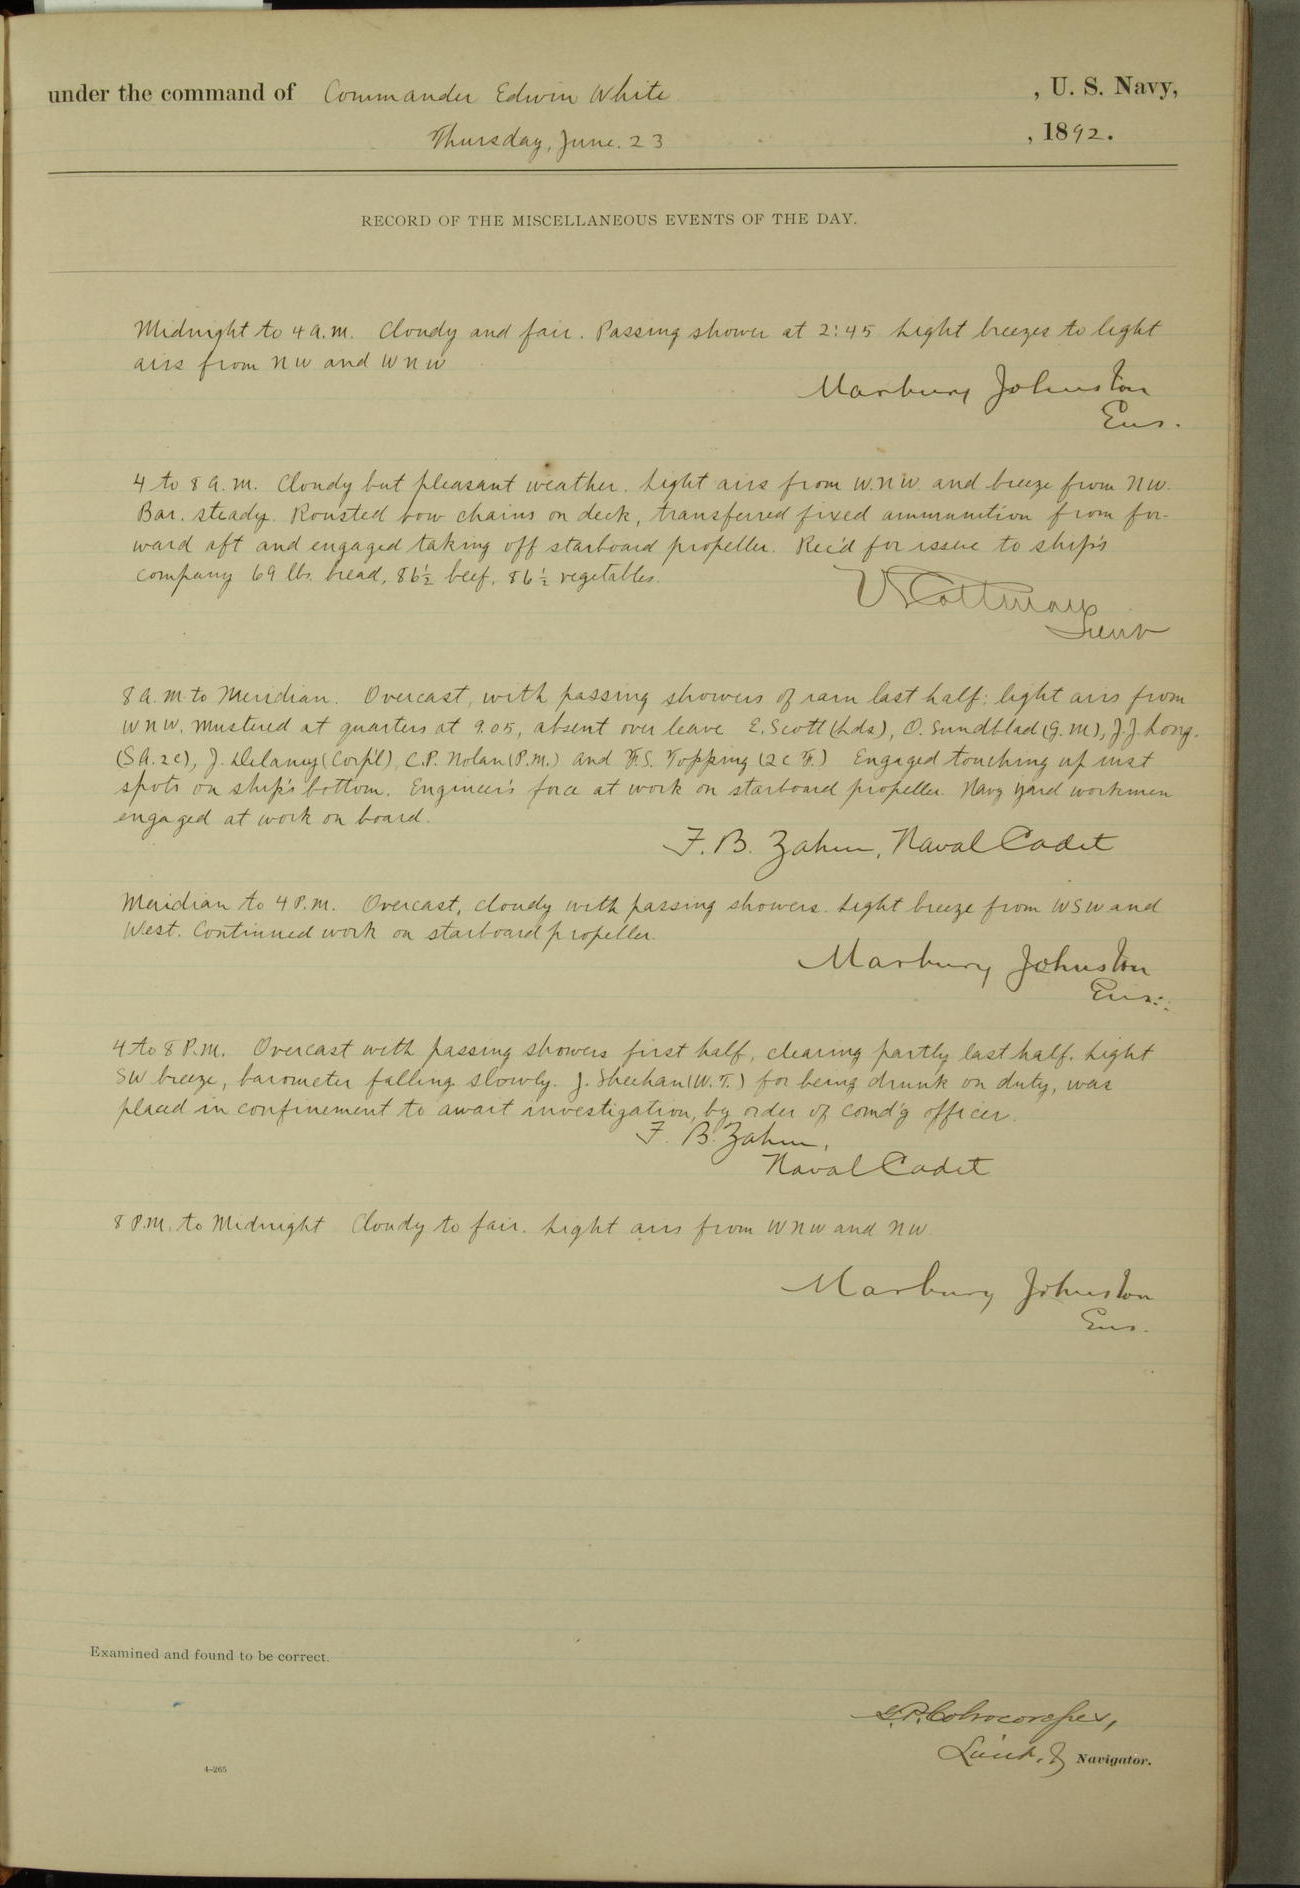 under the command of Commander Edwin White , U. S. Navy,
Thursday, June. 23 , 1892.
RECORD OF THE MISCELLANEOUS EVENTS OF THE DAY.
Midnight to 4 a.m. Cloudy and fair. Passing shower at 2:45 Light breezes to light
airs from NW and WNW
Marbury Johnston
Ens.
4 to 8 a.m. Cloudy but pleasant weather. Light airs from W.N.W. and breeze from NW.
Bar. steady. Rousted bow chains on deck, transferred fixed ammunition from for-
ward aft and engaged taking off starboard propeller. Rec'd for issue to ship's
company 69 lbs. bread, 86½ beef, 86½ vegetables.
V Cottman
Lieut
8 a.m. to Meridian. Overcast, with passing showers of rain last half: light airs from
WNW. Mustered at quarters at 9.05, absent over leave E. Scott (Lds), O. Sundblad (G.M), J.J. Long.
(S.A. 2c), J. Delaney (Corp'l), C.P. Nolan (P.M.) and F.S. Topping (2c F.) Engaged touching up rust
spots on ship's bottom. Engineer's force at work on starboard propeller. Navy yard workmen
engaged at work on board.
F. B. Zahm, Naval Cadet
Meridian to 4 P.m. Overcast, cloudy with passing showers. Light breeze from WSW and
West. Continued work on starboard propeller.
Marbury Johnston
Ens.
4 to 8 P.M. Overcast with passing showers first half, clearing partly last half. Light
SW breeze, barometer falling slowly. J. Sheehan (W.T.) for being drunk on duty, was
placed in confinement to await investigation, by order of comd'g officer.
F. B. Zahm,
Naval Cadet
8 P.M. to Midnight Cloudy to fair. Light airs from WNW and NW.
Marbury Johnston
Ens.
Examined and found to be correct.
Lieut. & Navigator.
4-265